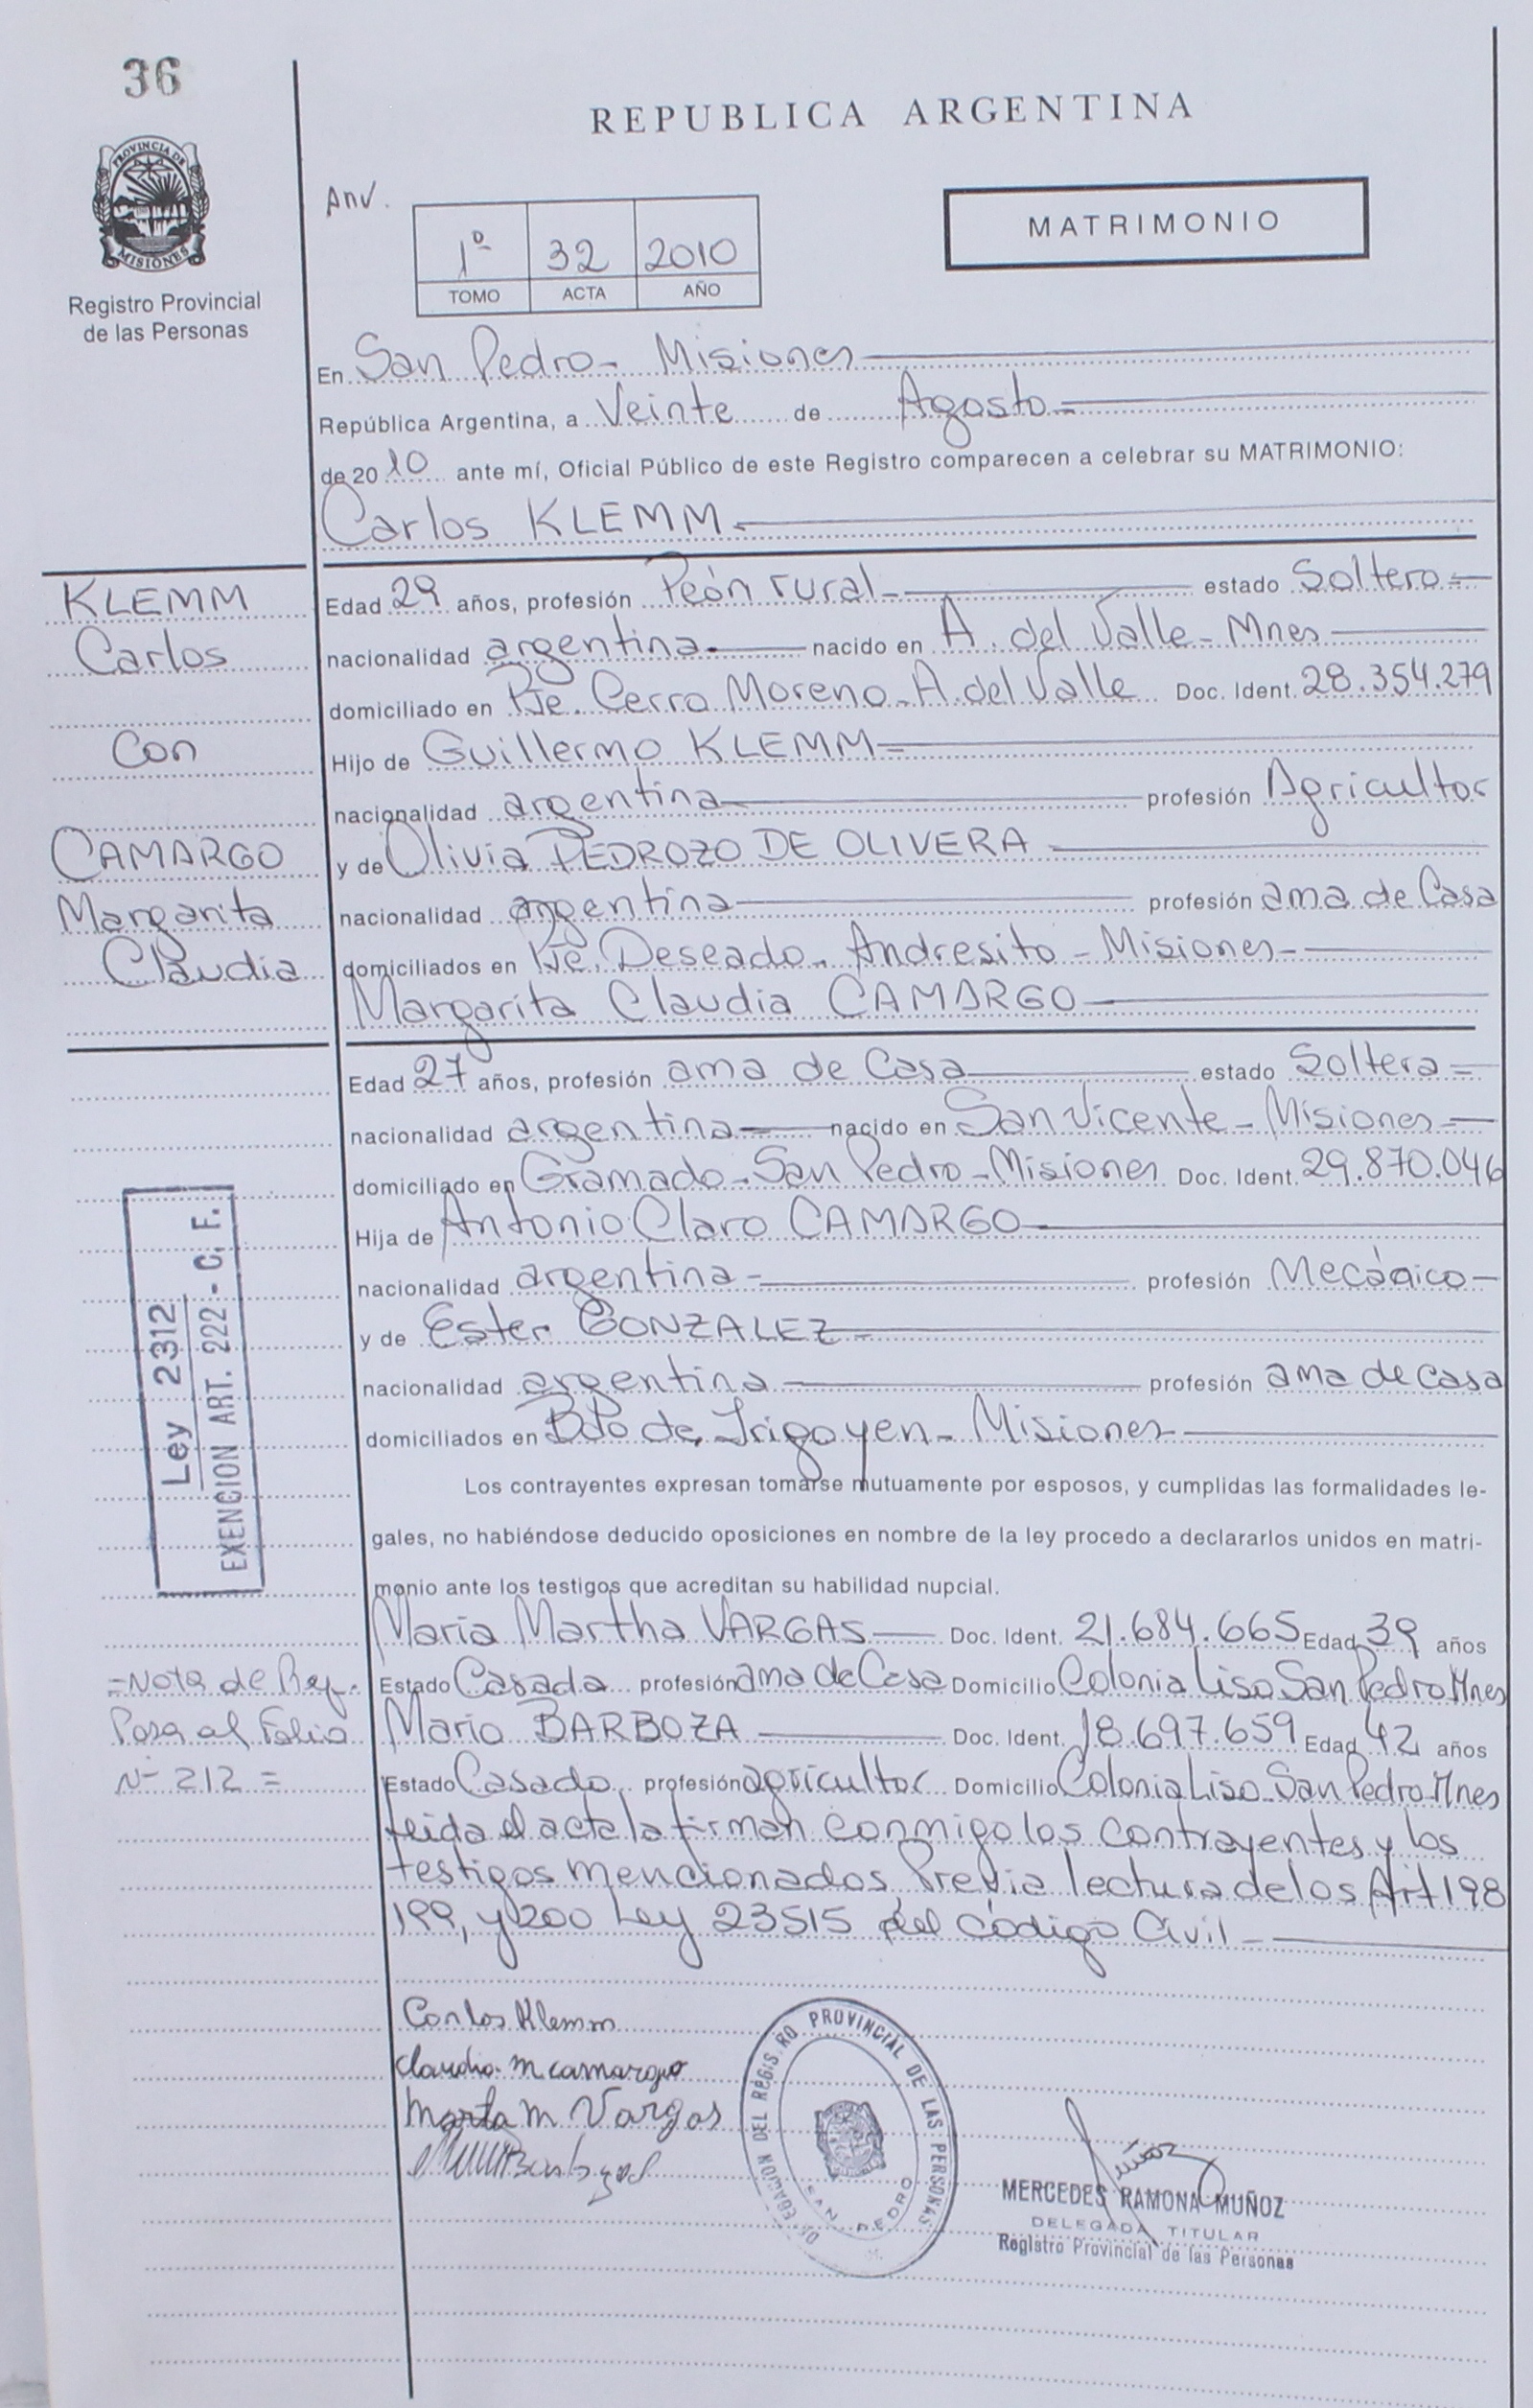 36
REPUBLICA ARGENTINA
PROVINCIA DE
MISIONES
Registro Provincial
de las Personas
Anv.
1º 32 2010
TOMO ACTA AÑO
MATRIMONIO
En San Pedro - Misiones
República Argentina, a Veinte de Agosto
de 2010 ante mí, Oficial Público de este Registro comparecen a celebrar su MATRIMONIO:
Carlos KLEMM
KLEMM
Carlos
Con
CAMARGO
Margarita
Claudia
Edad 29 años, profesión Peón rural estado Soltero
nacionalidad argentina nacido en A. del Valle - Mnes
domiciliado en Pje. Cerro Moreno - A. del Valle Doc. Ident. 28.354.279
Hijo de Guillermo KLEMM
nacionalidad argentina profesión Agricultor
y de Olivia PEDROZO DE OLIVERA
nacionalidad argentina profesión ama de Casa
domiciliados en Pje. Deseado - Andresito - Misiones
Margarita Claudia CAMARGO
Edad 27 años, profesión ama de Casa estado Soltera
nacionalidad argentina nacido en San Vicente - Misiones
domiciliado en Gramado - San Pedro - Misiones Doc. Ident. 29.870.046
Hija de Antonio Claro CAMARGO
nacionalidad argentina profesión Mecánico
y de Ester GONZALEZ
nacionalidad argentina profesión ama de casa
domiciliados en Bdo de Irigoyen - Misiones
Ley 2312
EXENCION ART. 222 - C. F.
Los contrayentes expresan tomarse mutuamente por esposos, y cumplidas las formalidades le-
gales, no habiéndose deducido oposiciones en nombre de la ley procedo a declararlos unidos en matri-
monio ante los testigos que acreditan su habilidad nupcial.
Maria Martha VARGAS Doc. Ident. 21.684.665 Edad 39 años
Estado Casada profesión ama de Casa Domicilio Colonia Liso San Pedro Mnes
Mario BARBOZA Doc. Ident. 18.697.659 Edad 42 años
Estado Casado profesión agricultor Domicilio Colonia Liso San Pedro Mnes
=Nota de Ref.
Pasa al Folio
Nº 212 =
Leida el acta la firman conmigo los contrayentes y los
testigos mencionados, Previa lectura de los Art 198
199, y 200 Ley 23515 del Código Civil
Carlos Klemm
Claudia m camargo
Marta M Vargas
DELEGACION DEL REGISTRO PROVINCIAL DE LAS PERSONAS
SAN PEDRO
MERCEDES RAMONA MUÑOZ
DELEGADA TITULAR
Registro Provincial de las Personas